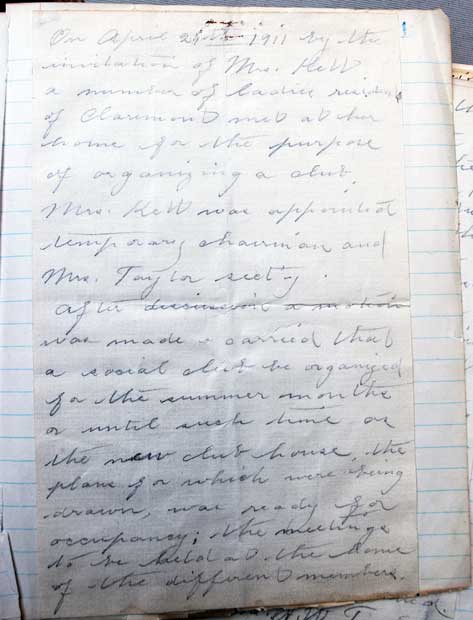 On April 25th 1911 by the
invitation of Mrs. Kett
a number of ladies residents
of Claremont met at her
home for the purpose
of organizing a club.
Mrs. Kett was appointed
temporary chairman and
Mrs. Taylor sect'y.
After discussion a motion
was made & carried that
a social club be organized
for the summer months
or until such time as
the new club house, the
plans for which were being
drawn, was ready for
occupancy; the meetings
to be held at the home
of the different members.